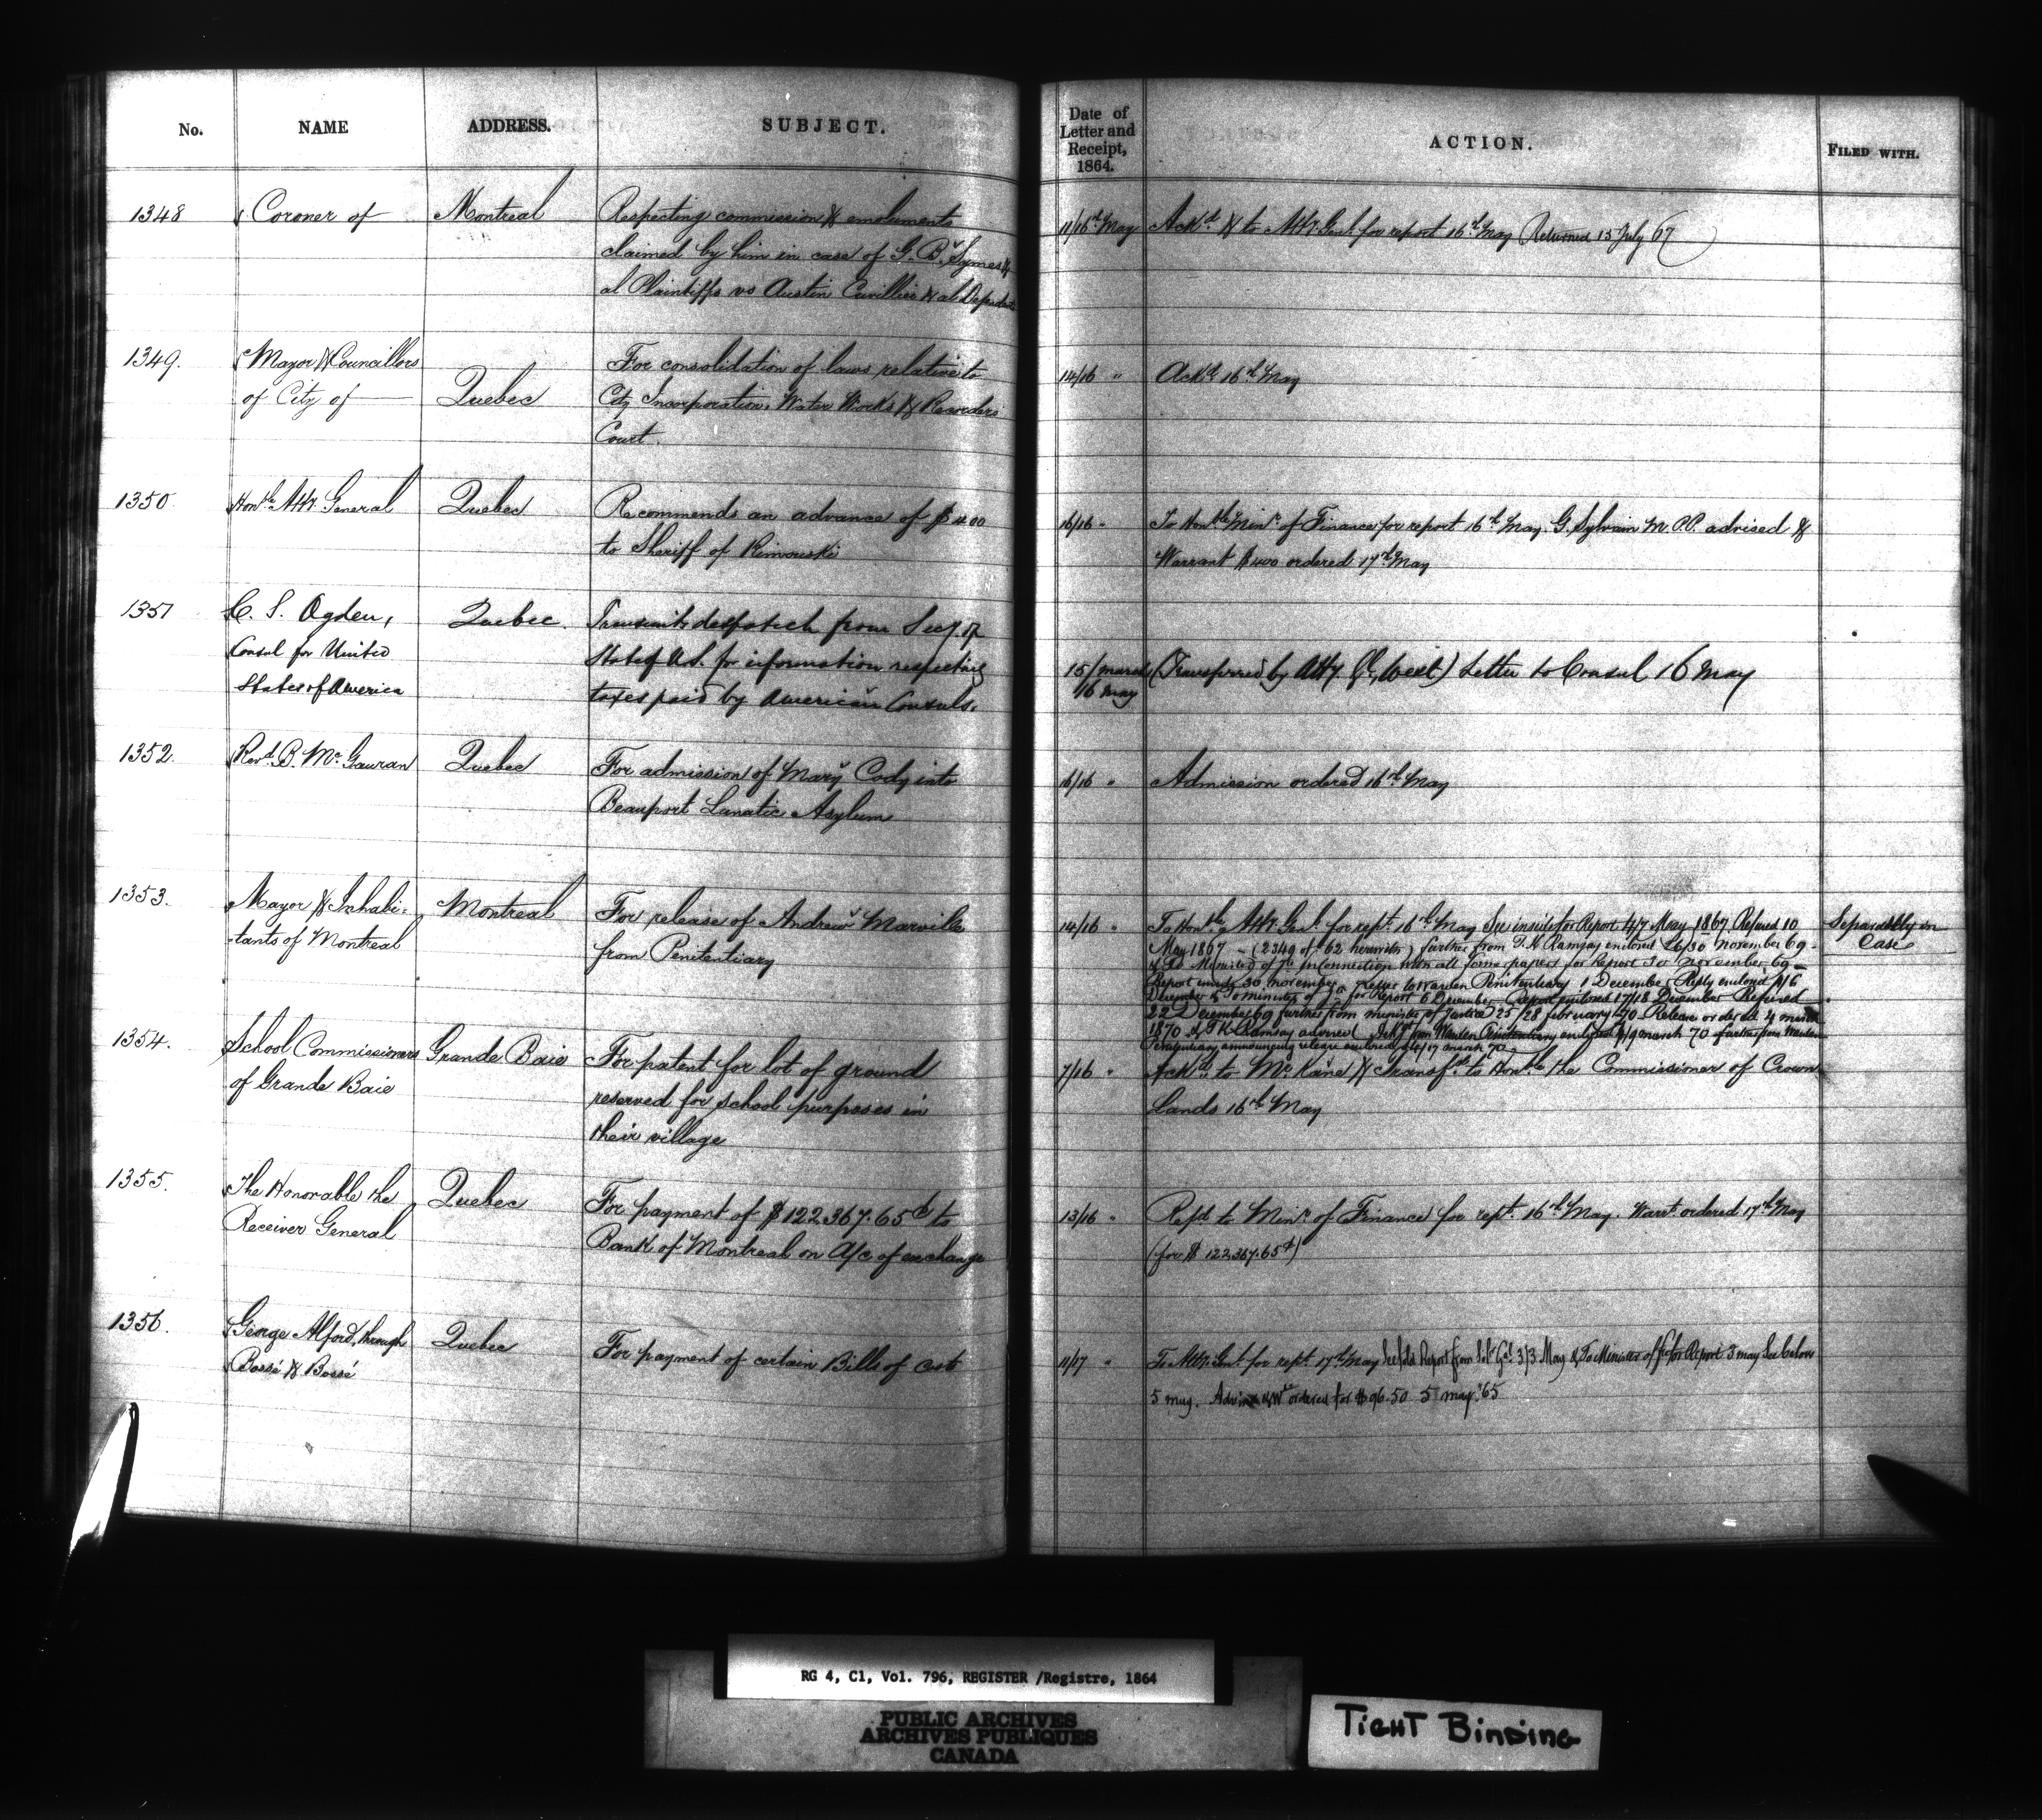 No. NAME ADDRESS. SUBJECT.
Date of Letter and Receipt, 1864. ACTION. FILED WITH.
1348 Coroner of Montreal Respecting commission & emoluments
claimed by him in case of G. B. Symes &
al Plaintiffs vs Austin Cuvillier & al Defendants
11/16th May Ackd & to Atty. Genl. for report 16th May Returned 15 July 67
1349. Mayor & Councillors For consolidation of laws relative to
of City of Quebec City Incorporation, Water Works & Recorders
Court.
14/16 " Ackd. 16th May
1350. Honble Atty. General Quebec Recommends an advance of $400
to Sheriff of Rimouski
16/16 " To Honble Minr. of Finance for report 16th May. G. Sylvain M.P.P. advised &
Warrant $400 ordered 17th May
1351 C. S. Ogden, Quebec. Transmits despatch from Secy. of
Consul for United State of U.S. for information respecting
States of America taxes paid by American Consuls.
15/march (Transferred by Atty. Gl, West) Letter to Consul 16 May
16 may
1352. Revd. B. Mc Gauran Quebec For admission of Mary Cody into
Beauport Lunatic Asylum
16/16 " Admission ordered 16th May
1353. Mayor & Inhabi- Montreal For release of Andrew Marville
tants of Montreal from Penitentiary
14/16 " To Honble Atty. Genl. for rept. 16th May See inside for Report 4/7 May 1867. Refused 10 Separately in
May 1867 - (2349 of '62 herewith) further from T. K. Ramsay enclosed 26/30 November 69 - Case
& To Minister of Jce in connection with all former papers for Report 30 November 69 -
Report 30 November. Letter to Warden Penitentiary 1 December. Reply enclosed 4/6
December & To minister of Jce for Report 6 December - Report enclosed 17/18 December - Refused
22 December 69 further from minister of Justice 25/28 february 70 - Release ordered 4 march
1870 & T K Ramsay advised from Warden Penitentiary enclosed 9 march 70 further from Warden
Penitentiary announcing release enclosed 17 march 70
1354. School Commissioners Grande Baie For patent for lot of ground
of Grande Baie reserved for school purposes in
their village
7/16 " Ackd. to Mr. Kane & Transfd. to Honble the Commissioner of Crown
Lands 16th May
1355. The Honorable the Quebec For payment of $122,367.65c to
Receiver General Bank of Montreal on A/c of exchange
13/16 " Refd to Minr. of Finance for rept. 16th May. Warrt. ordered 17th May
(for $122,367.65c)
1356. George Alford, through Quebec For payment of certain Bills of Costs
Bossé & Bossé
11/17 " To Atty. Genl. for rept. 17th May Report from Solr Gel 3/3 May & To Minister of for Report 3 may See below
5 may. & Wt ordered for $96.50 5 may '65
RG 4, C1, Vol. 796, REGISTER /Registre, 1864
PUBLIC ARCHIVES
ARCHIVES PUBLIQUES
CANADA
TIGHT BINDING